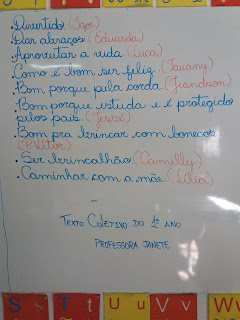 .Divertido (Igor)
.Dar abraços (Eduarda)
.Aproveitar a vida. (Luca)
.Como é bom ser feliz. (Tauany)
.Bom porque pula corda. (Jeandson)
.Bom porque estuda e é protegido
pelos pais. (Jessé)
.Bom pra brincar com bonecos
(P. Vitor)
. Ser brincalhão (Camilly)
. Caminhar com a mãe. (Lilia)
Texto Coletivo do 1º ano
Professora Janete
S T t U u V v W